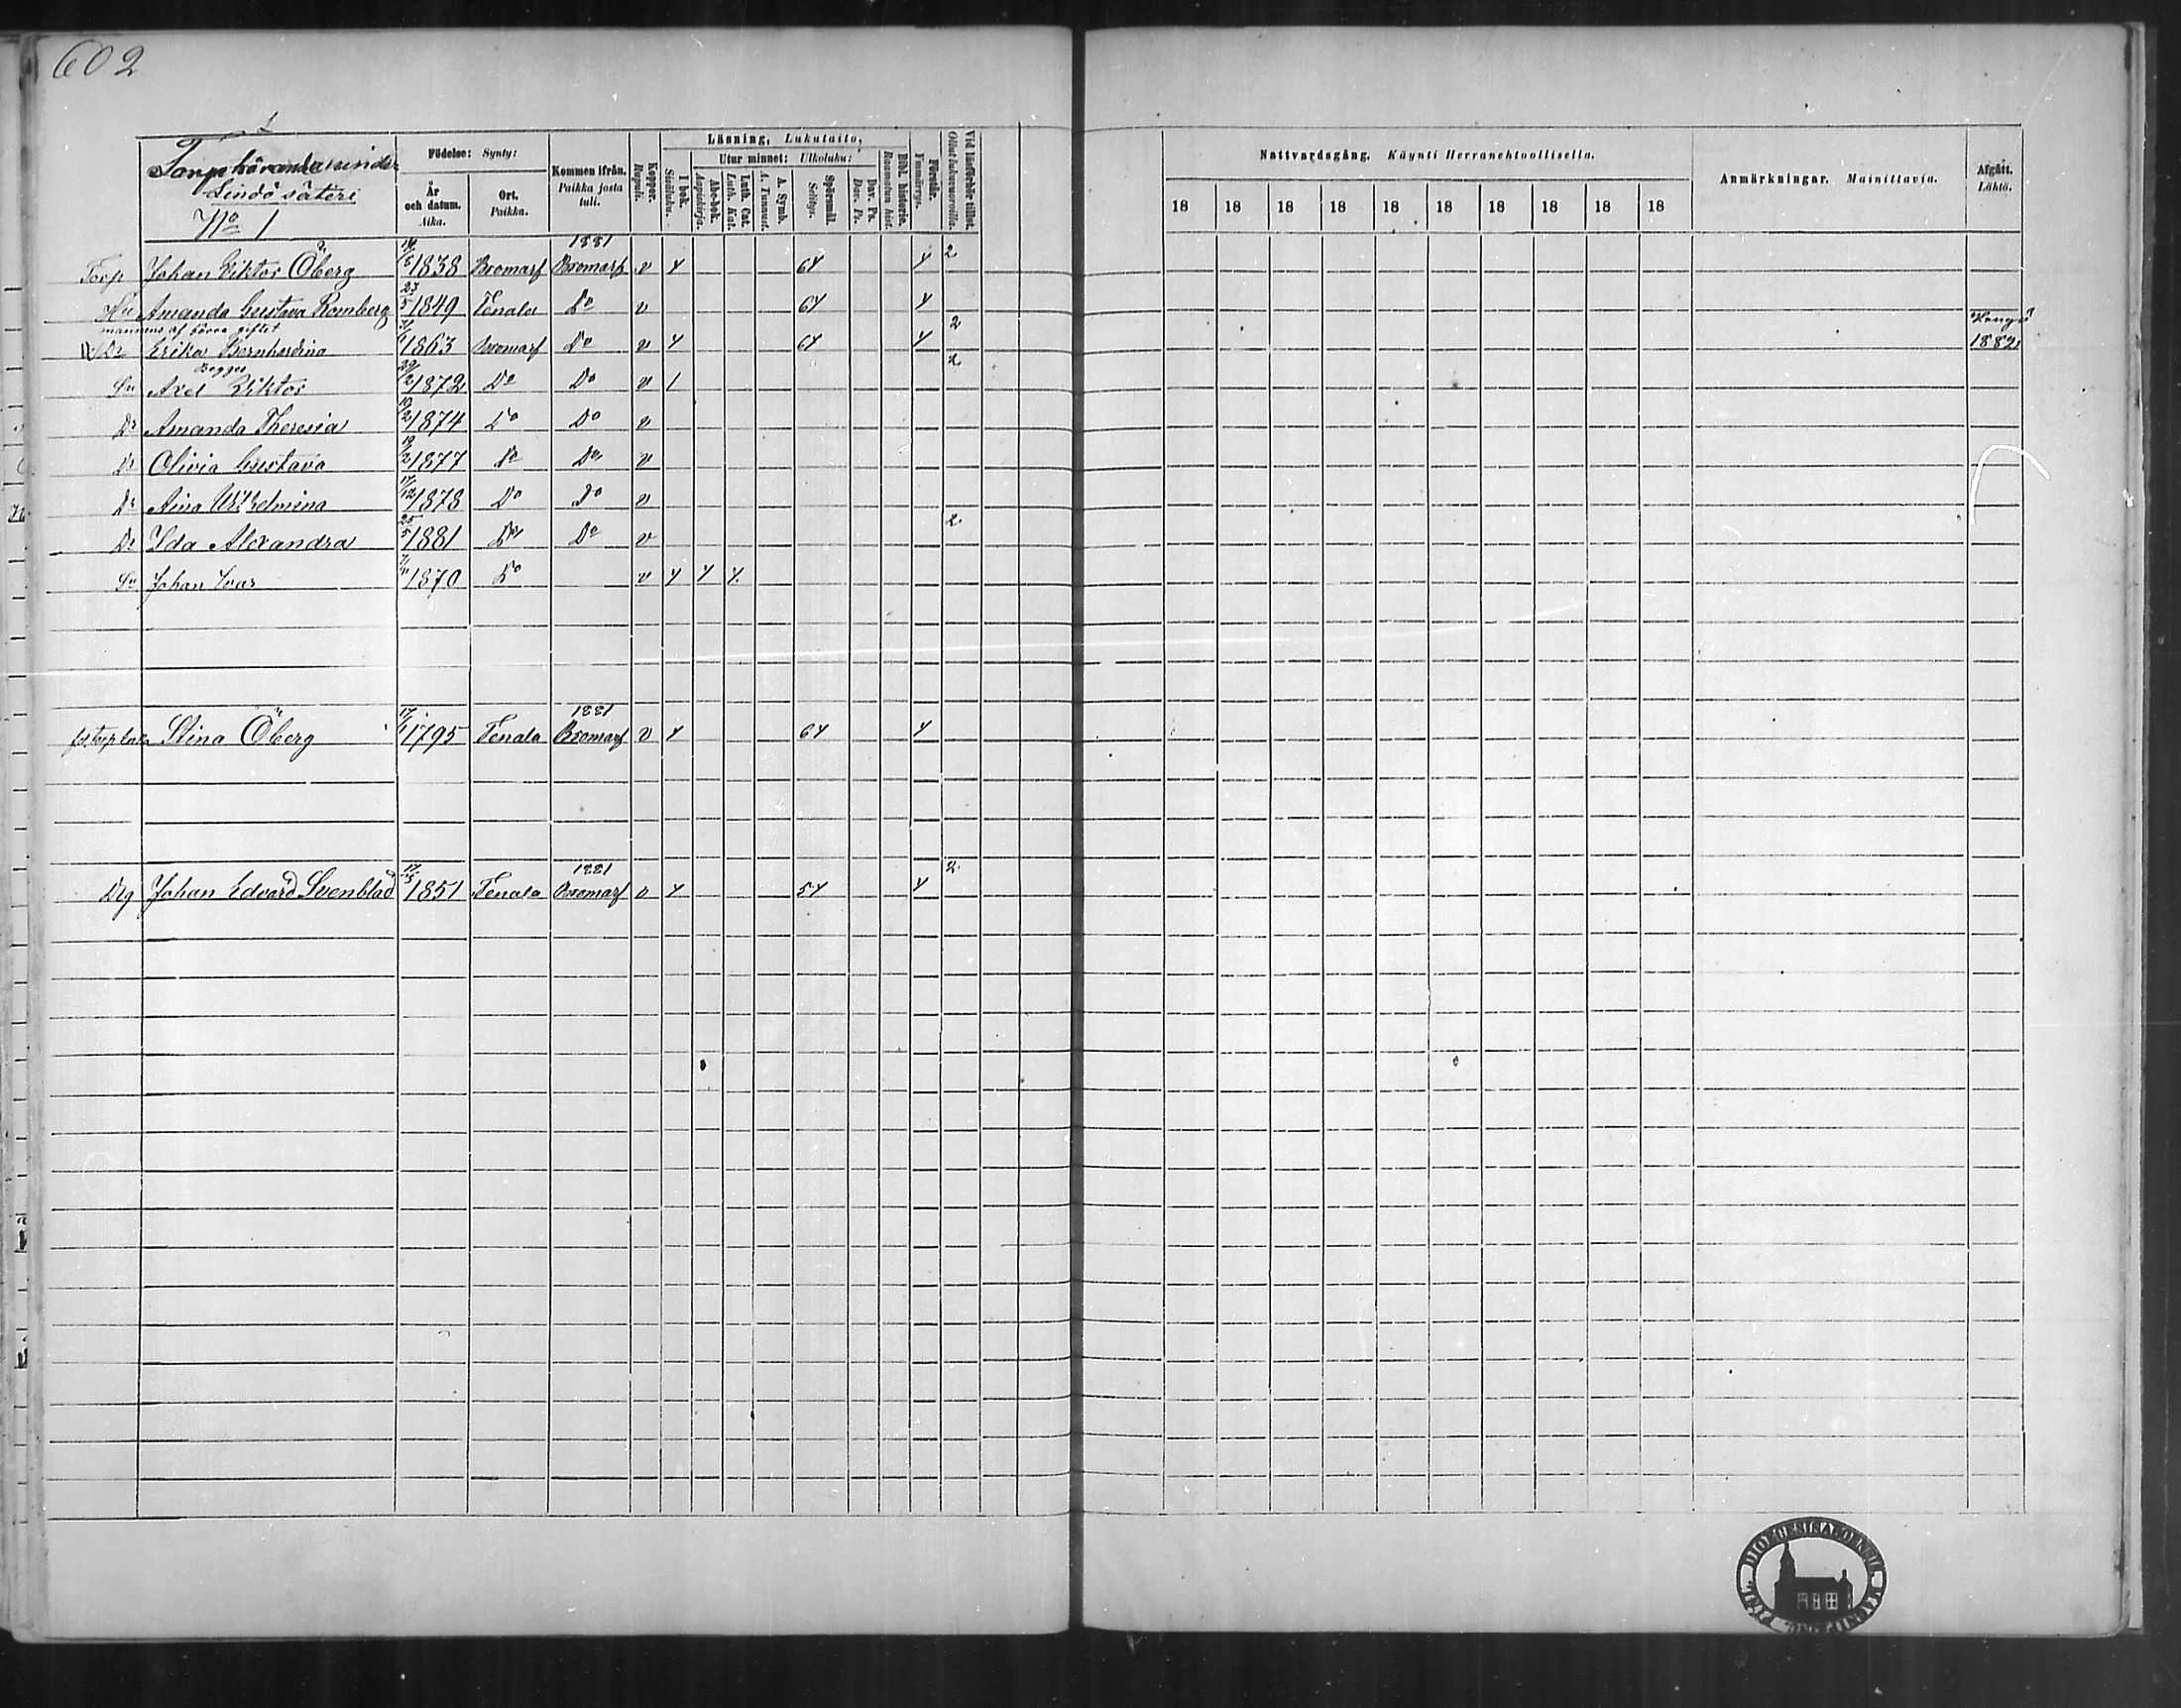 602
Torp hörande under
Lindö säteri
No 1
Födelse: Synty:
År och datum. Aika.
Ort. Paikka.
Kommen ifrån. Paikka josta tuli.
Koppor. Rupuli.
Läsning, Lukutaito,
I bok. Sisäluku.
Utur minnet: Ulkoluku:
Abc-bok. Aapiskirja.
Luth. Cat. Luth. Kat.
A. Symb. A. Tunnust.
Spörsmål. Selitys.
Dav. Ps. Dav. Ps.
Bibl. historie. Raamatun hist.
Förstår. Ymmärrys.
Vid läsförhör tillst. Ollut lukuvuoroilla.
Nattvardsgång. Käynti Herranehtoollisella.
18 18 18 18 18 18 18 18 18 18
Anmärkningar. Mainittavia.
Afgått. Lähtö.
Torp Johan Viktor Öberg 1838 Bromarf 1881 Bromarf v 4 64 4 2
Hu Amanda Gustava Romberg 23/5 1849 Tenala Do v 64 4
mannens af förra giftet
Dr Erika Bernhardina 1863 Bromarf Do v 4 64 4 2 Hangö 1882
Begges
Sn Axel Viktor 1872 Do Do v 1 2
Dr Amanda Theresia 10/2 1874 Do Do v
Dr Olivia Gustava 19/2 1877 Do Do v
Dr Aina Wilhelmina 17/12 1878 Do Do v
Dr Ida Alexandra 25/5 1881 Do Do v 2
Sn Johan Ivar 1870 Do v 4 4 4
Stina Öberg 17/1 1795 Tenala 1881 Bromarf v 4 64 4
Drg Johan Edvard Svenblad 1851 Tenala 1881 Bromarf v 4 54 4 2